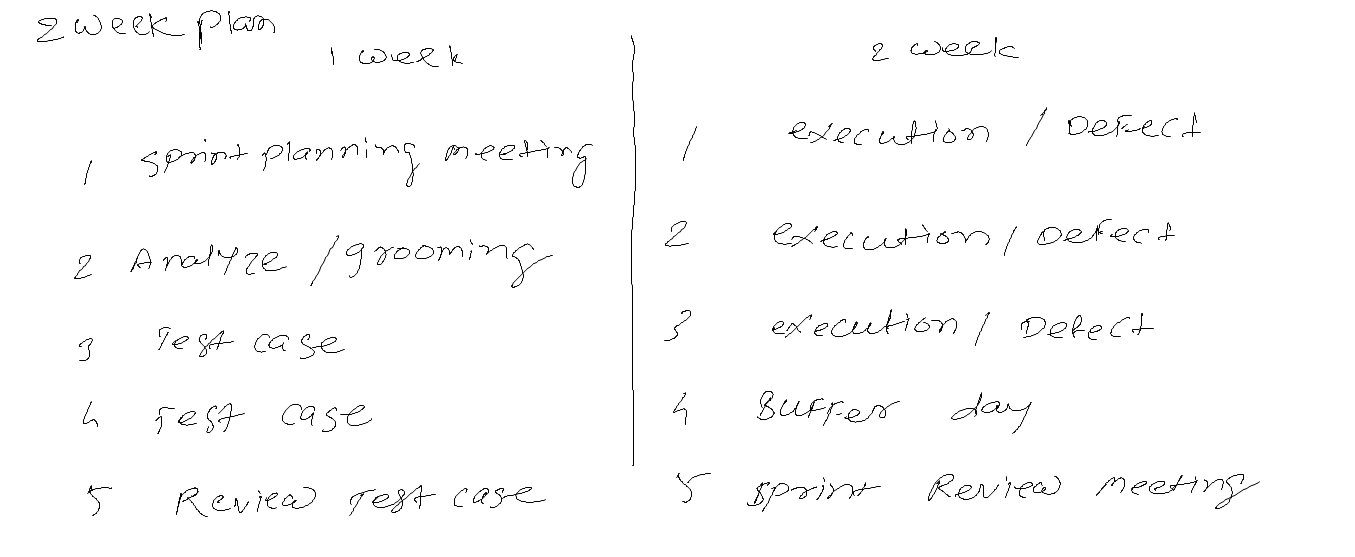 2 week plan
1 week
1 sprint planning meeting
2 Analyze / grooming
3 Test case
4 Test case
5 Review Test case
2 week
1 execution / Defect
2 execution / Defect
3 execution / Defect
4 Buffer day
5 sprint Review meeting